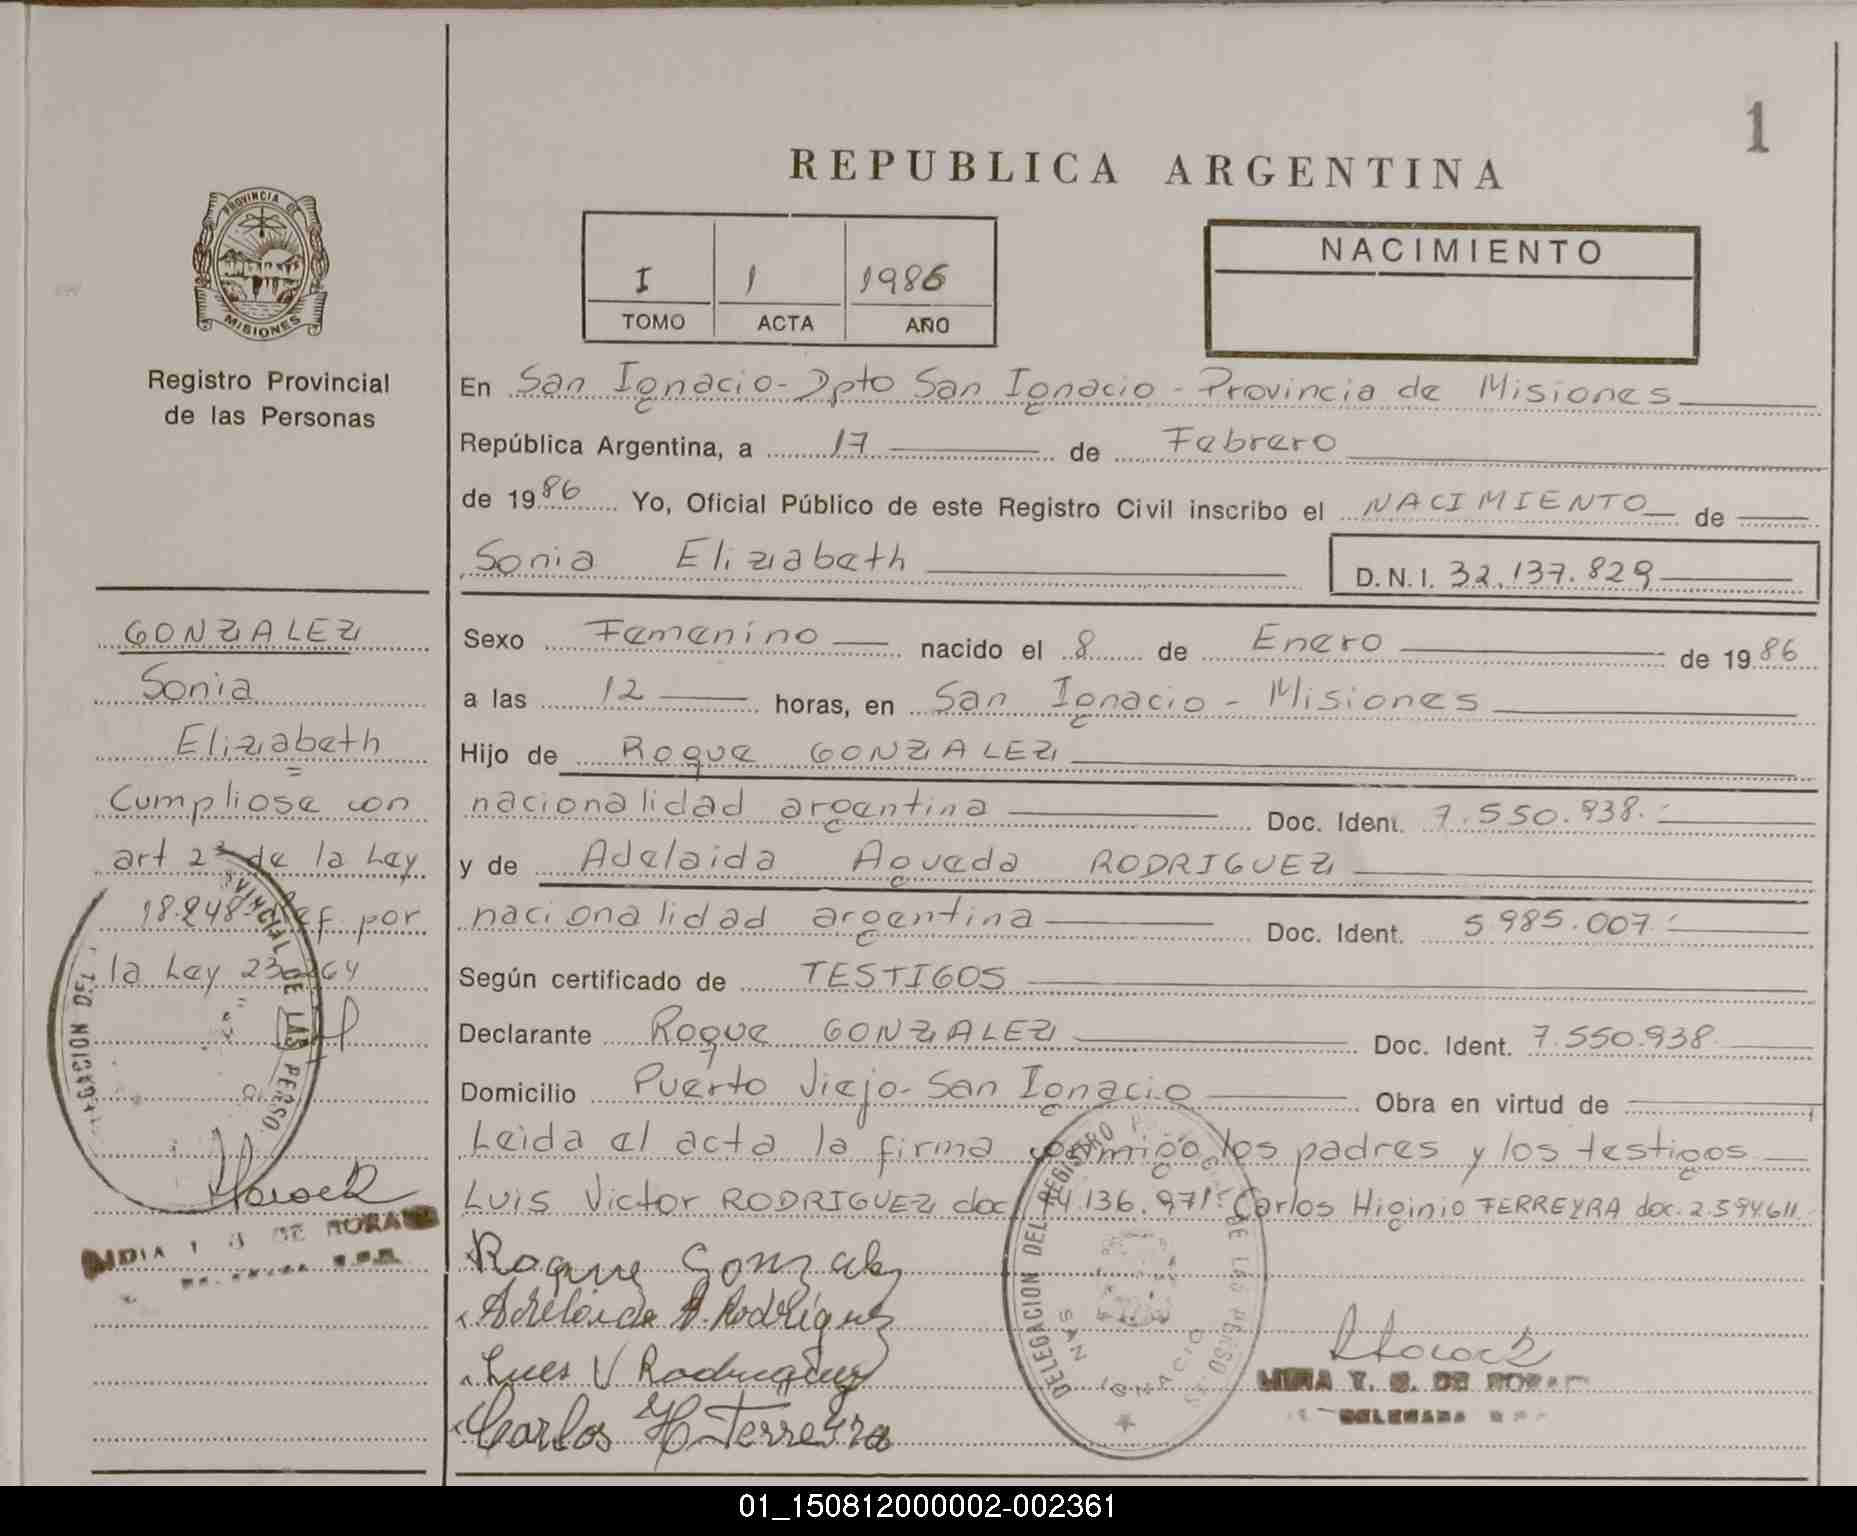 1
REPUBLICA ARGENTINA
PROVINCIA DE
MISIONES
Registro Provincial
de las Personas
I 1 1986
TOMO ACTA AÑO
NACIMIENTO
En San Ignacio - Dpto San Ignacio - Provincia de Misiones
República Argentina, a 17 de Febrero
de 1986 Yo, Oficial Público de este Registro Civil inscribo el NACIMIENTO de
Sonia Elizabeth D.N.I. 32.137.829
Sexo Femenino nacido el 8 de Enero de 1986
a las 12 horas, en San Ignacio - Misiones
Hijo de Roque GONZALEZ
nacionalidad argentina Doc. Ident. 7.550.938.
y de Adelaida Agueda RODRIGUEZ
nacionalidad argentina Doc. Ident. 5985.007
Según certificado de TESTIGOS
Declarante Roque GONZALEZ Doc. Ident. 7.550.938.
Domicilio Puerto Viejo - San Ignacio Obra en virtud de
Leida el acta la firma conmigo los padres y los testigos
Luis Victor RODRIGUEZ doc. 14.136.971 Carlos Higinio FERREYRA doc. 2.594.611.
Roque Gonzalez
Adelaida A. Rodriguez
Luis V Rodriguez
Carlos H Ferreyra
DELEGACION DEL REGISTRO DE LAS PERSO
SAN IGNACIO
DELEGADA
GONZALEZ
Sonia
Elizabeth
Cumpliose con
art 2º de la Ley
18.248 Ref por
la Ley 23264
DELEGACION DEL
VINCIAL DE LAS PERSO.
01_150812000002-002361